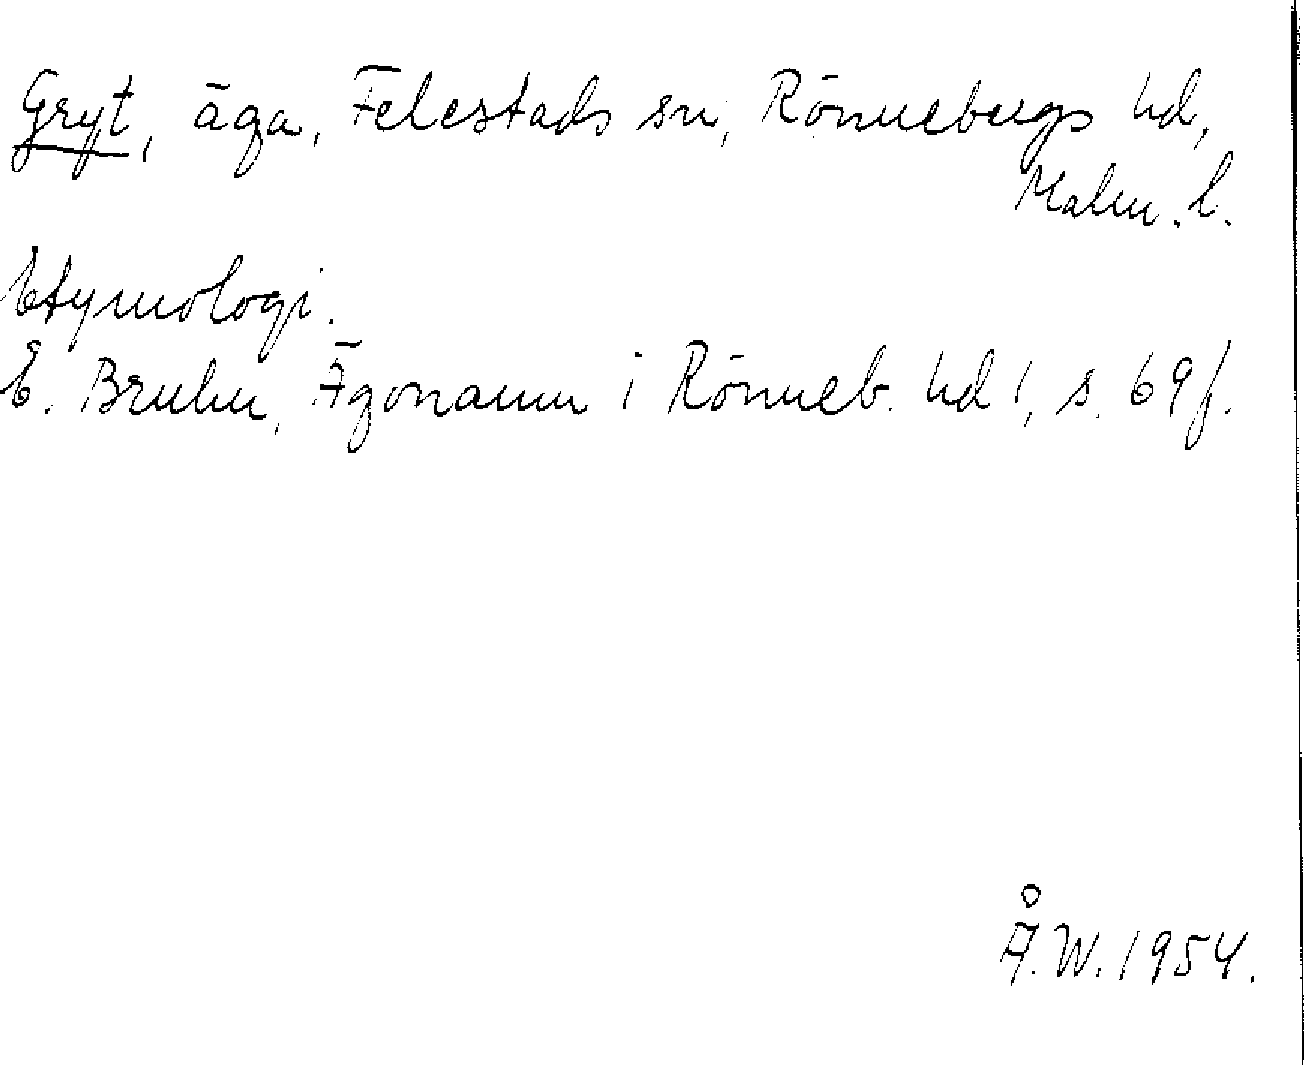 Gryt, äga, Felestads sn, Rönnebergs hd,
Malm. l.
Etymologi.
E. Bruhn, Ägonamn i Rönneb. hd 1, s. 69 f.
Å. W. 1954.